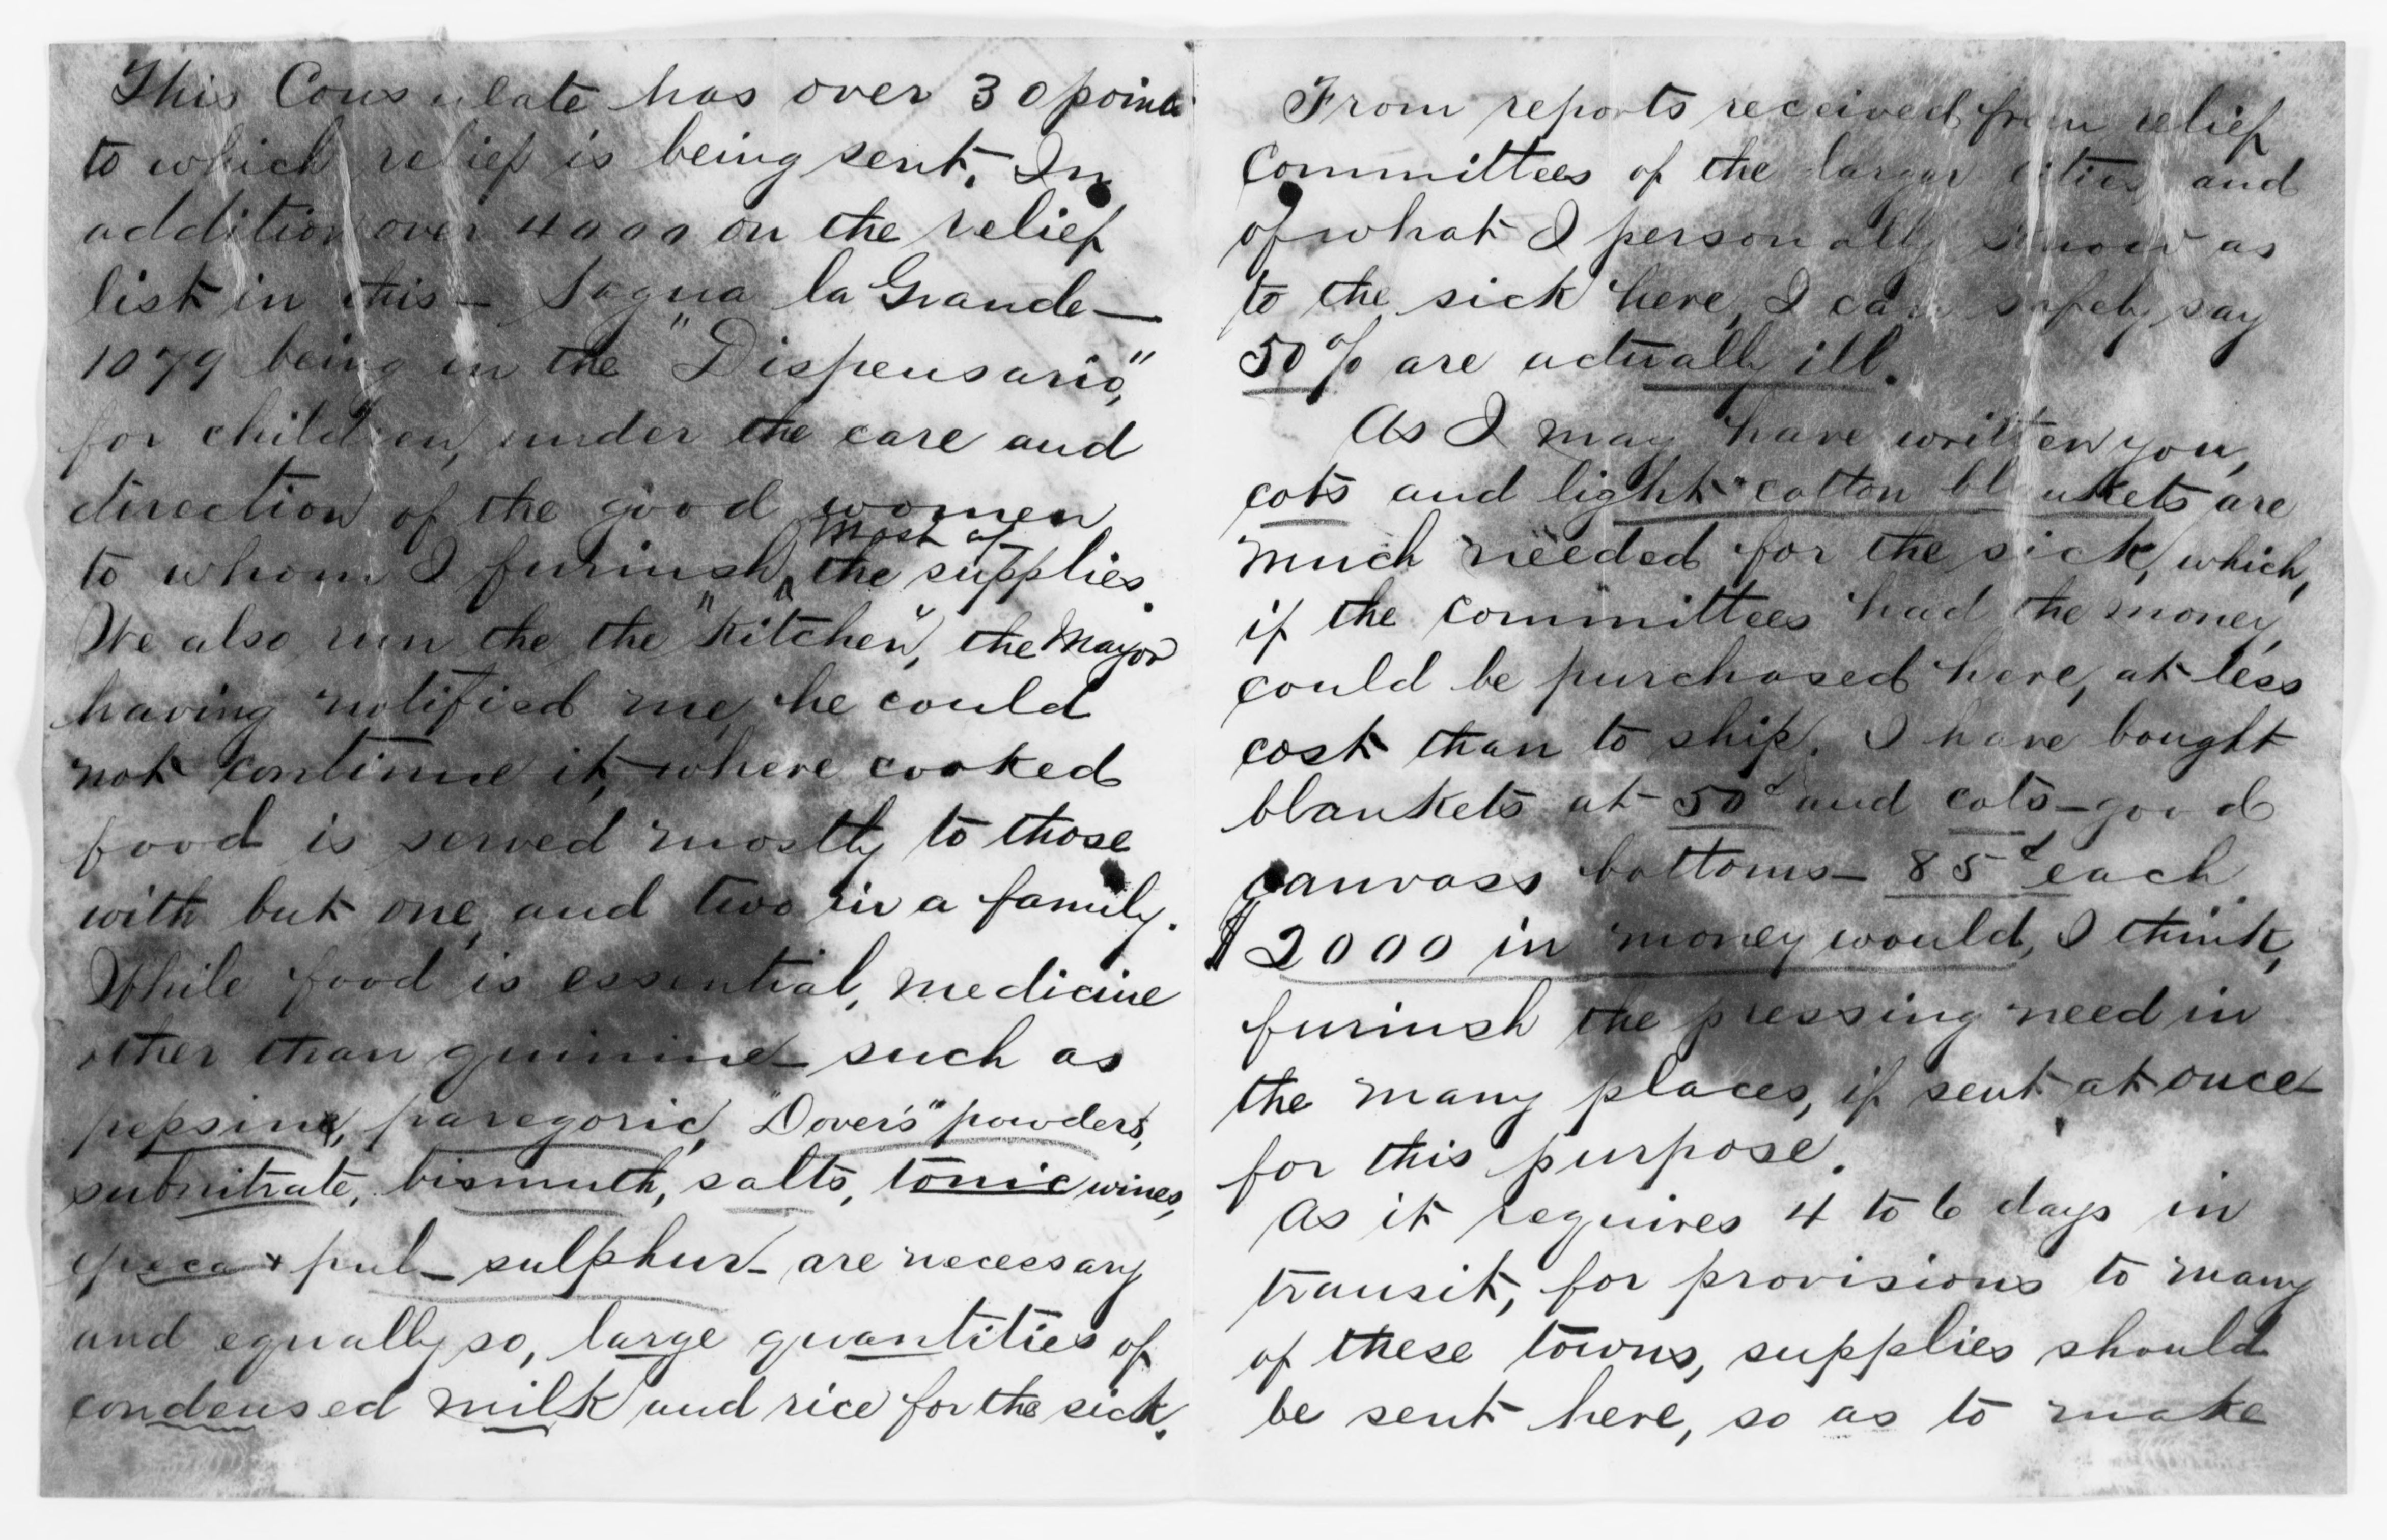 This Consulate has over 30 points
to which relief is being sent. In
addition over 4000 on the relief
list in this – Sagua la Grande –
1079 being in the "Dispensario",
for children, under the care and
direction of the good women
most of
to whom I furnish ^ the supplies.
We also run the the "Kitchen", the Mayor
having notified me, he could
not continue it, where cooked
food is served mostly to those
with but one, and two in a family.
While food is essential, medicine
other than quinine – such as
pepsine, paregoric, "Dover's" powders,
subnitrate, bismuth, salts, tonic wines,
ipeca & pul – sulphur – are necessary
and equally so, large quantities of
condensed milk and rice for the sick.
From reports received from relief
Committees of the larger cities, and
of what I personally know as
to the sick here, I can safely say
50% are actually ill.
As I may have written you,
cots and light cotton blankets are
much needed for the sick, which,
if the committees had the money,
could be purchased here, at less
cost than to ship. I have bought
blankets at 50¢ and cots – good
canvass bottoms – 85¢ each.
$2000 in money would, I think,
furinsh the pressing need in
the many places, if sent at once
for this purpose.
As it requires 4 to 6 days in
transit, for provisions to many
of these towns, supplies should
be sent here, so as to make